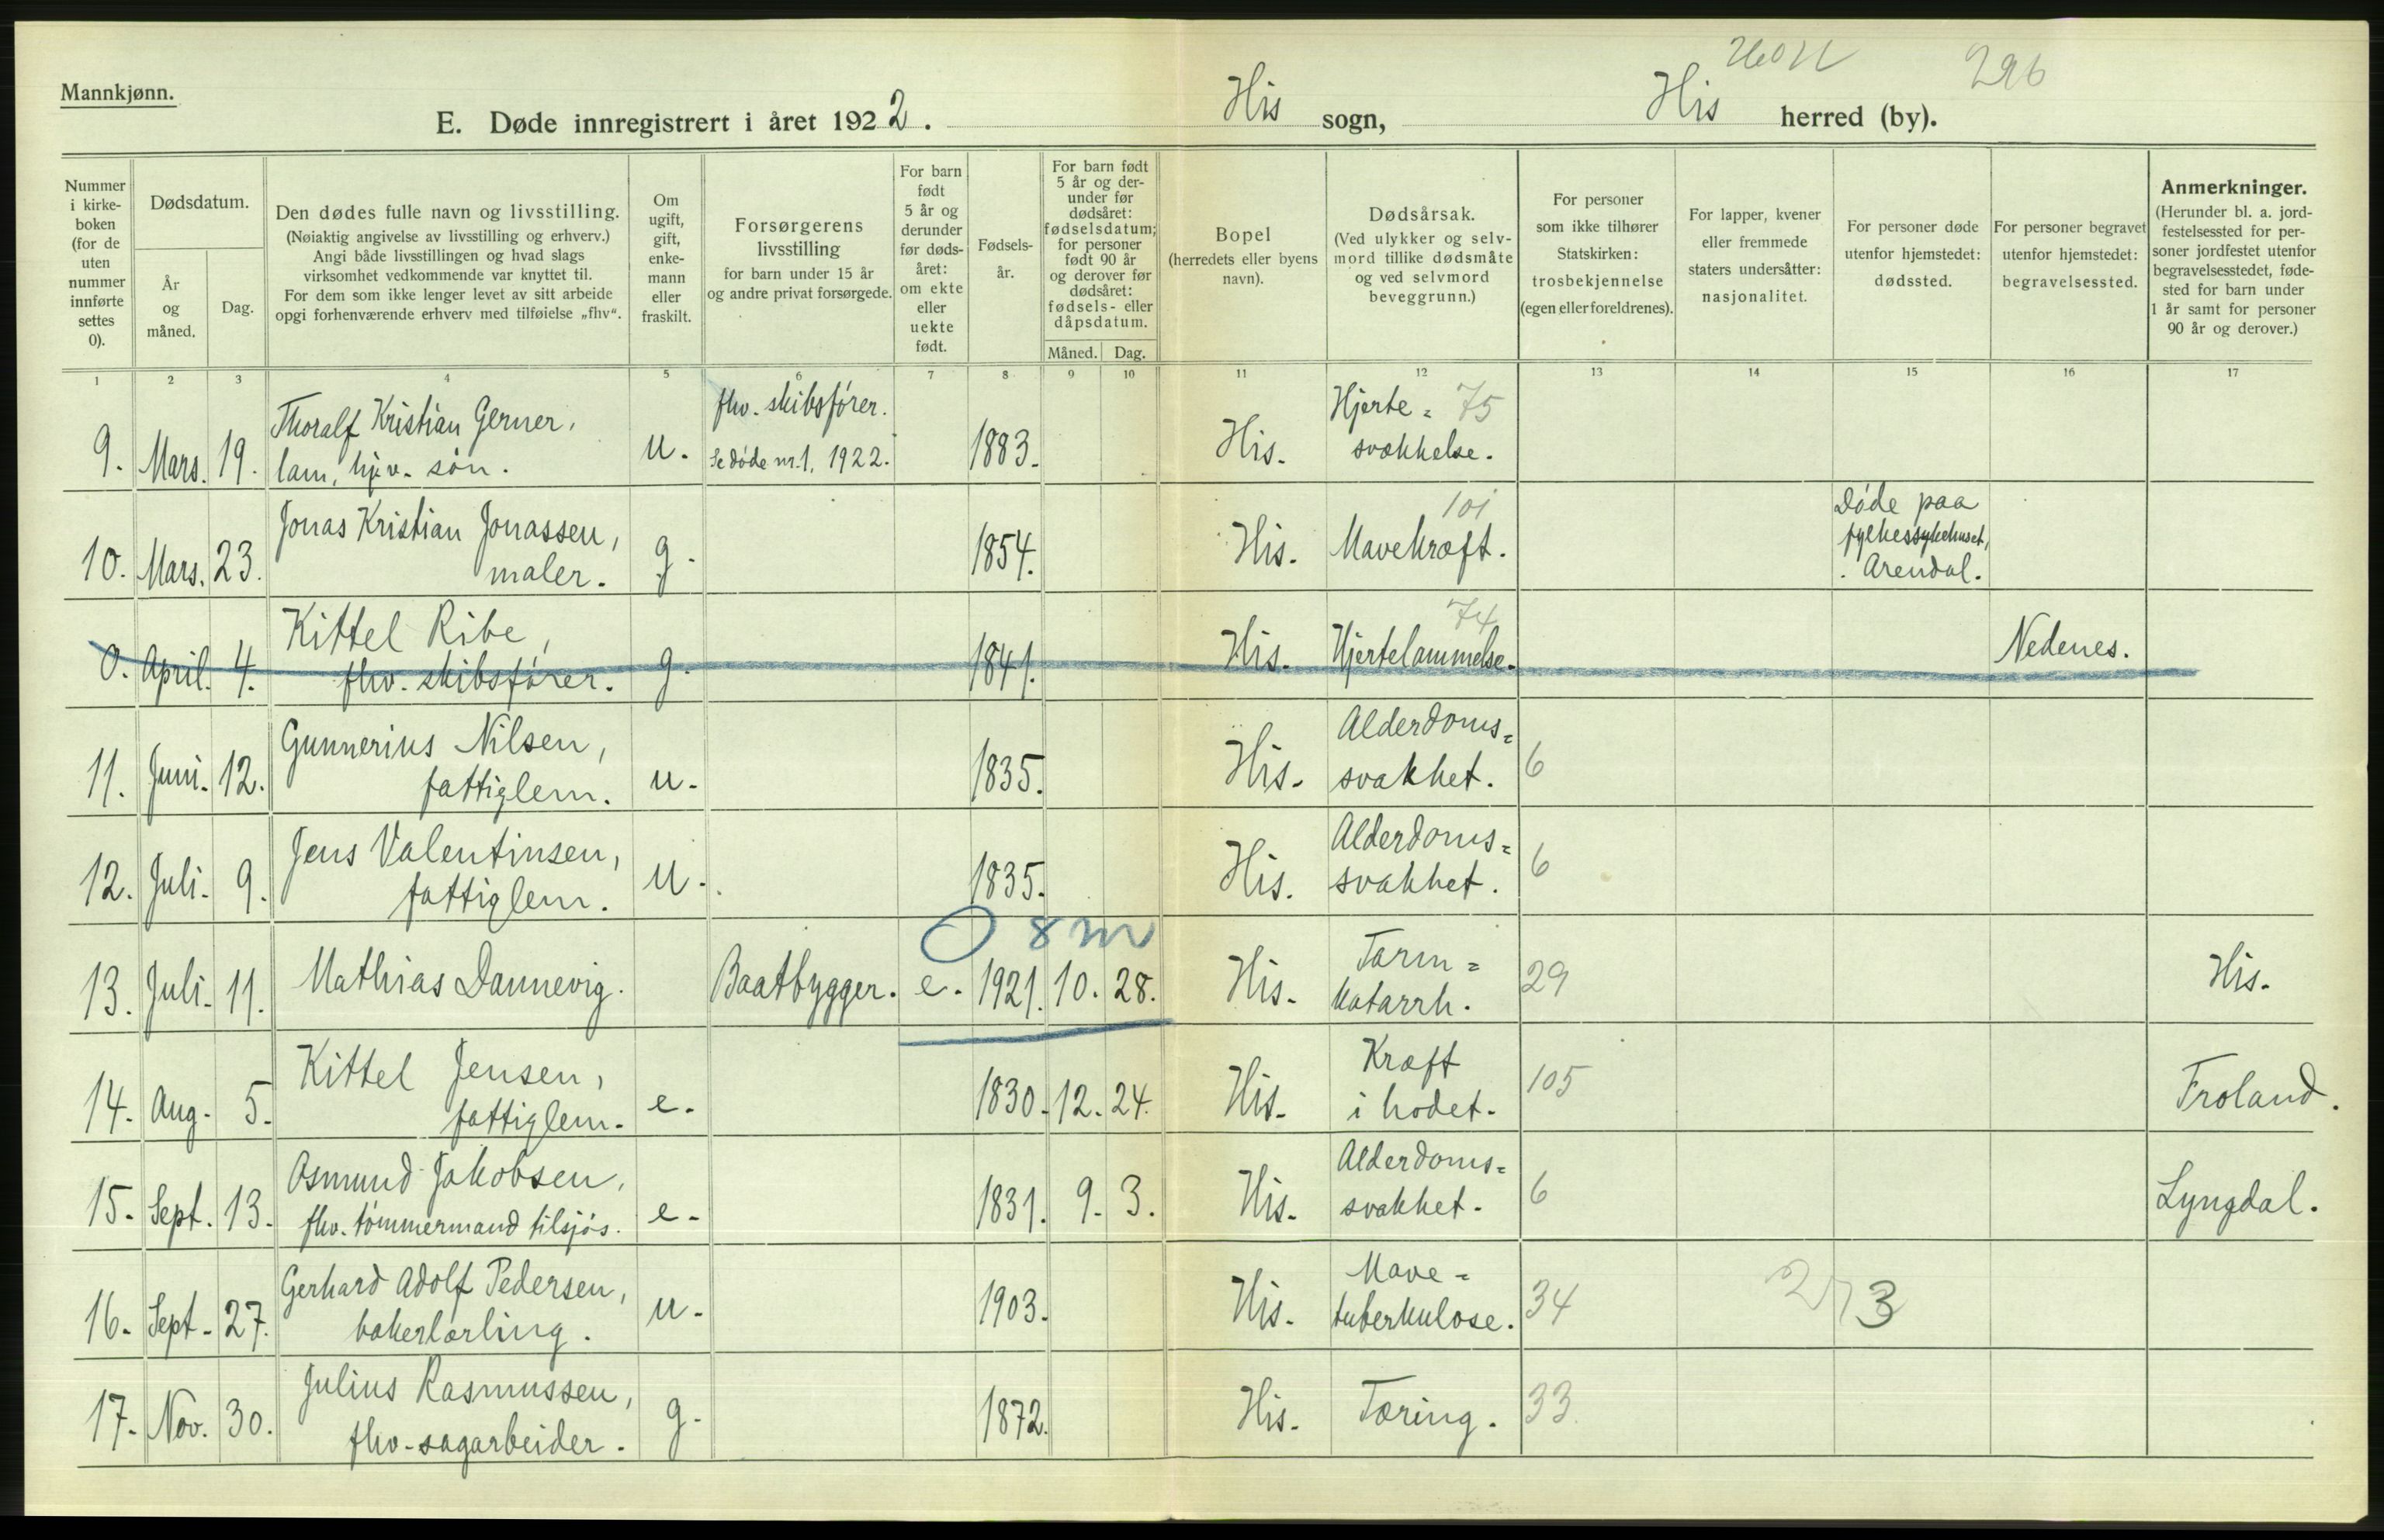 Mannkjønn.
E. Døde innregistrert i året 1922. His sogn, His herred (by).
296
Nummer i kirke- boken (for de uten nummer innførte settes 0).
Dødsdatum.
År og måned.
Dag.
Den dødes fulle navn og livsstilling.
(Nøiaktig angivelse av livsstilling og erhverv.)
Angi både livsstillingen og hvad slags
virksomhet vedkommende var knyttet til.
For dem som ikke lenger levet av sitt arbeide
opgi forhenværende erhverv med tilføielse „fhv“.
Om ugift, gift, enke- mann eller fraskilt.
Forsørgerens livsstilling
for barn under 15 år
og andre privat forsørgede.
For barn født 5 år og derunder før døds- året: om ekte eller uekte født.
Fødsels- år.
For barn født 5 år og der- under før dødsåret: fødselsdatum; for personer født 90 år og derover før dødsåret: fødsels- eller dåpsdatum.
Måned. Dag.
Bopel
(herredets eller byens navn).
Dødsårsak.
(Ved ulykker og selv- mord tillike dødsmåte og ved selvmord beveggrunn.)
For personer som ikke tilhører Statskirken: trosbekjennelse (egen eller foreldrenes).
For lapper, kvener eller fremmede staters undersåtter: nasjonalitet.
For personer døde utenfor hjemstedet: dødssted.
For personer begravet utenfor hjemstedet: begravelsessted.
Anmerkninger.
(Herunder bl. a. jord- festelsessted for per- soner jordfestet utenfor begravelsesstedet, føde- sted for barn under 1 år samt for personer 90 år og derover.)
1 2 3 4 5 6 7 8 9 10 11 12 13 14 15 16 17
9. Mars. 19. Thoralf Kristian Gerner, u. fhv. skibsfører. 1883. His. Hjerte= 75
lam, hjv. søn. Se døde nr. 1, 1922. svækkelse.
10. Mars. 23. Jonas Kristian Jonassen, g. 1854. His. Mavekræft. 101 Døde paa
maler. fylkessykehuset,
Arendal.
0. April. 4. Kittel Ribe, g. 1841. His. Hjertelammelse. 74 Nedenes.
fhv. skibsfører.
11. Juni. 12. Gunnerius Nilsen, u. 1835. His. Alderdoms= 6
fattiglem. svakhet.
12. Juli. 9. Jens Valentinsen, u. 1835. His. Alderdoms= 6
fattiglem. svakhet.
O 8 m
13. Juli. 11. Mathias Dannevig. Baatbygger. e. 1921. 10. 28. His. Tarm= 29 His.
katarrh.
14. Aug. 5. Kittel Jensen, e. 1830. 12. 24. His. Kræft 105 Froland.
fattiglem. i hodet.
15. Sept. 13. Osmund Jakobsen, e. 1831. 9. 3. His. Alderdoms= 6 Lyngdal.
fhv. tømmermand tilsjøs. svakhet.
16. Sept. 27. Gerhard Adolf Pedersen, u. 1903. His. Mave= 34 273
bakerlærling. tuberkulose.
17. Nov. 30. Julius Rasmussen, g. 1872. His. Tæring. 33
fhv. sagarbeider.